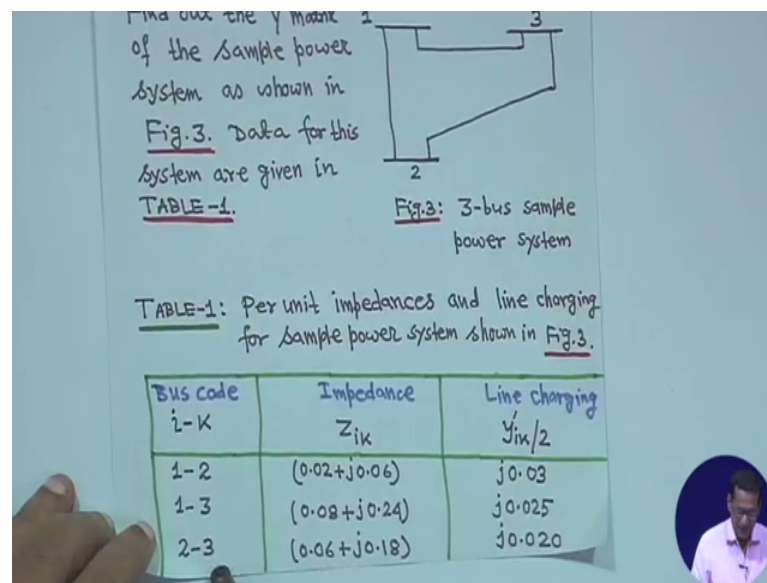 Find out the Y matrix
of the sample power
system as shown in
Fig.3. Data for this
system are given in
TABLE-1.
1
3
2
Fig.3: 3-bus sample
power system
TABLE-1: Per unit impedances and line charging
for sample power system shown in Fig.3.
Bus code Impedance Line charging
i-K Zik y'ik/2
1-2 (0.02+j0.06) j0.03
1-3 (0.08+j0.24) j0.025
2-3 (0.06+j0.18) j0.020